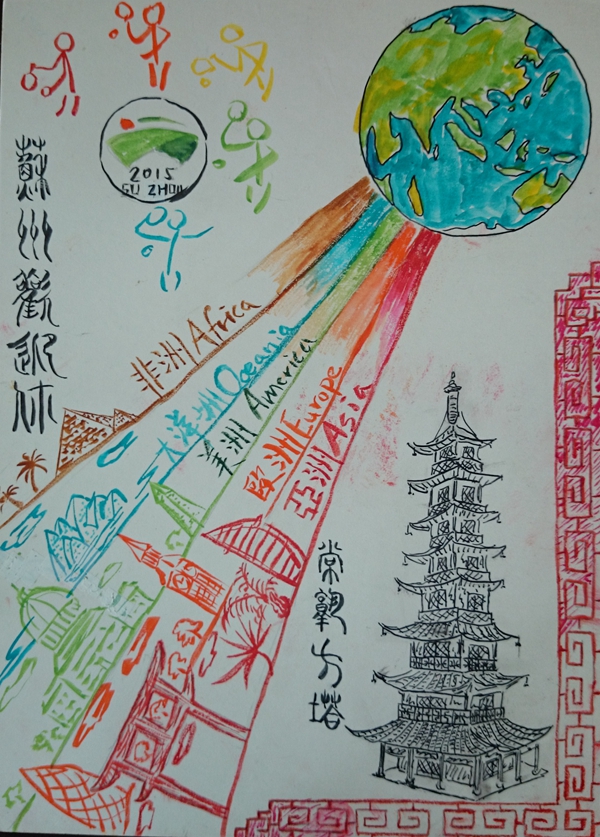 2015
SU ZHOU
蘇州歡迎你
非洲 Africa
大洋洲 Oceania
美洲 America
歐洲 Europe
亞洲 Asia
常熟方塔